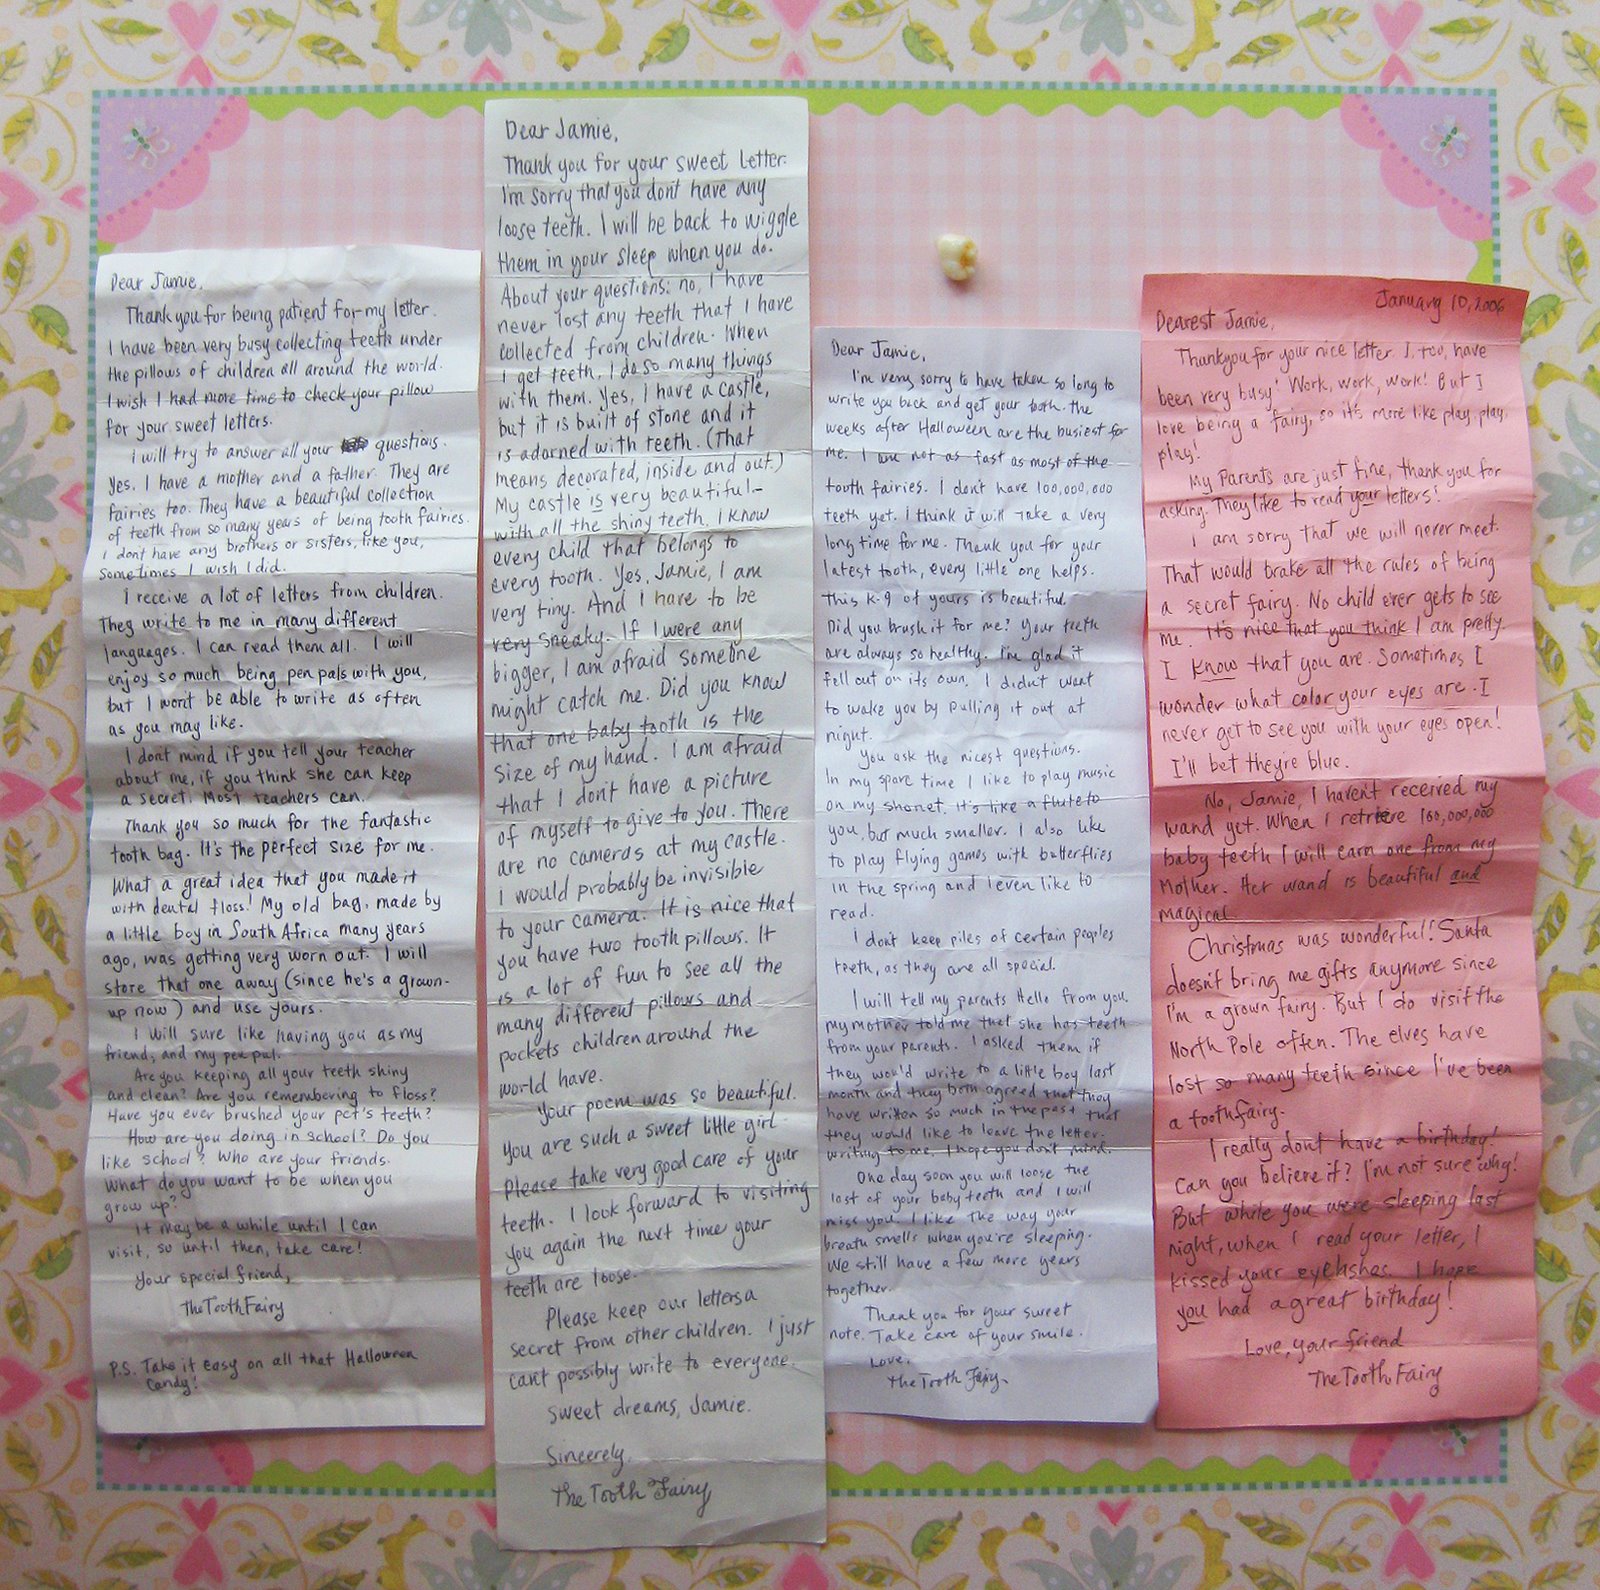 Dear Jamie,
Thank you for being patient for my letter.
I have been very busy collecting teeth under
the pillows of children all around the world.
I wish I had more time to check your pillow
for your sweet letters.
I will try to answer all your questions.
Yes. I have a mother and a father. They are
fairies too. They have a beautiful collection
of teeth from so many years of being tooth fairies.
I dont have any brothers or sisters, like you,
Sometimes I wish I did.
I receive a lot of letters from children.
They write to me in many different
languages. I can read them all. I will
enjoy so much being pen pals with you,
but I wont be able to write as often
as you may like.
I dont mind if you tell your teacher
about me, if you think she can keep
a secret. Most teachers can.
Thank you so much for the fantastic
tooth bag. It's the perfect size for me.
What a great idea that you made it
with dental floss! My old bag, made by
a little boy in South Africa many years
ago, was getting very worn out. I will
store that one away (since he's a grown-
up now) and use yours.
I will sure like having you as my
friend, and my pen pal.
Are you keeping all your teeth shiny
and clean? Are you remembering to floss?
Have you ever brushed your pet's teeth?
How are you doing in school? Do you
like school? Who are your friends.
What do you want to be when you
grow up?
It may be a while until I can
visit, so until then, take care!
Your special friend,
The Tooth Fairy
P.S. Take it easy on all that Halloween
Candy!
Dear Jamie,
Thank you for your sweet letter.
I'm sorry that you dont have any
loose teeth. I will be back to wiggle
them in your sleep when you do.
About your questions: no, I have
never lost any teeth that I have
collected from children. When
I get teeth, I do so many things
with them. Yes, I have a castle,
but it is built of stone and it
is adorned with teeth. (That
means decorated, inside and out.)
My castle is very beautiful-
with all the shiny teeth. I know
every child that belongs to
every tooth. Yes, Jamie, I am
very tiny. And I have to be
very sneaky. If I were any
bigger, I am afraid someone
might catch me. Did you know
that one baby tooth is the
size of my hand. I am afraid
that I don't have a picture
of myself to give to you. There
are no cameras at my castle.
I would probably be invisible
to your camera. It is nice that
you have two tooth pillows. It
is a lot of fun to see all the
many different pillows and
pockets children around the
world have.
Your poem was so beautiful.
You are such a sweet little girl.
Please take very good care of your
teeth. I look forward to visiting
you again the next time your
teeth are loose.
Please keep our letters a
secret from other children. I just
cant possibly write to everyone.
Sweet dreams, Jamie.
Sincerely,
The Tooth Fairy
Dear Jamie,
I'm very sorry to have taken so long to
write you back and get your tooth. The
weeks after Halloween are the busiest for
me. I am not as fast as most of the
tooth fairies. I don't have 100,000,000
teeth yet. I think it will take a very
long time for me. Thank you for your
latest tooth, every little one helps.
This K-9 of yours is beautiful.
Did you brush it for me? Your teeth
are always so healthy. I'm glad it
fell out on its own. I didn't want
to wake you by pulling it out at
night.
You ask the nicest questions.
In my spare time I like to play music
on my shonet. It's like a flute to
you, but much smaller. I also like
to play flying games with butterflies
in the spring and I even like to
read.
I don't keep piles of certain peoples
teeth, as they are all special.
I will tell my parents Hello from you.
My mother told me that she has teeth
from your parents. I asked them if
they would write to a little boy last
month and they both agreed that they
have written so much in the past that
they would like to leave the letter
writing to me. I hope you don't mind.
One day soon you will loose the
last of your baby teeth and I will
miss you. I like the way your
breath smells when you're sleeping.
We still have a few more years
together.
Thank you for your sweet
note. Take care of your smile.
Love,
The Tooth Fairy
January 10, 2006
Dearest Jamie,
Thankyou for your nice letter. I, too, have
been very busy! Work, work, work! But I
love being a fairy, so it's more like play, play,
play!
My Parents are just fine, thank you for
asking. They like to read your letters!
I am sorry that we will never meet.
That would brake all the rules of being
a secret fairy. No child ever gets to see
me. It's nice that you think I am pretty.
I know that you are. Sometimes I
wonder what color your eyes are. I
never get to see you with your eyes open!
I'll bet theyre blue.
No, Jamie, I havent received my
wand yet. When I retrieve 100,000,000
baby teeth I will earn one from my
Mother. Her wand is beautiful and
magical.
Christmas was wonderful! Santa
doesn't bring me gifts anymore since
I'm a grown fairy. But I do visit the
North Pole often. The elves have
lost so many teeth since I've been
a toothfairy.
I really dont have a birthday!
Can you believe it? I'm not sure why!
But while you were sleeping last
night, when I read your letter, I
kissed your eyelashes. I hope
you had a great birthday!
Love, your friend
The Tooth Fairy